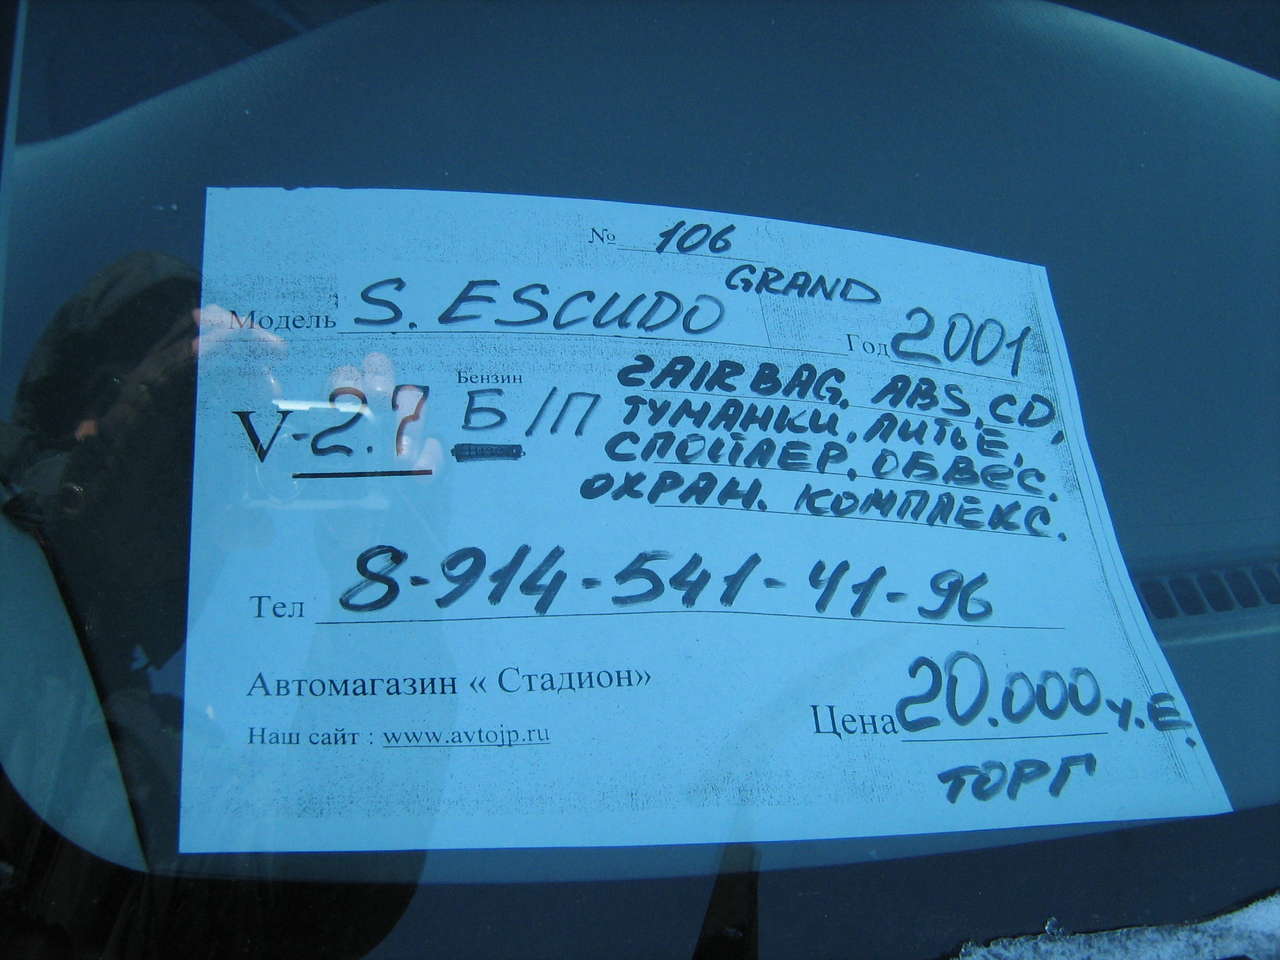 № 106
GRAND
Модель S. ESCUDO Год 2001
Бензин
V-2.7 Б/П
2AIRBAG. ABS. CD.
ТУМАНКИ. ЛИТЬЕ.
СПОЙЛЕР. ОБВЕС.
ОХРАН. КОМПЛЕКС.
Тел 8-914-541-41-96
Автомагазин « Стадион»
Цена 20.000 У.Е.
Наш сайт : www.avtojp.ru
ТОРГ